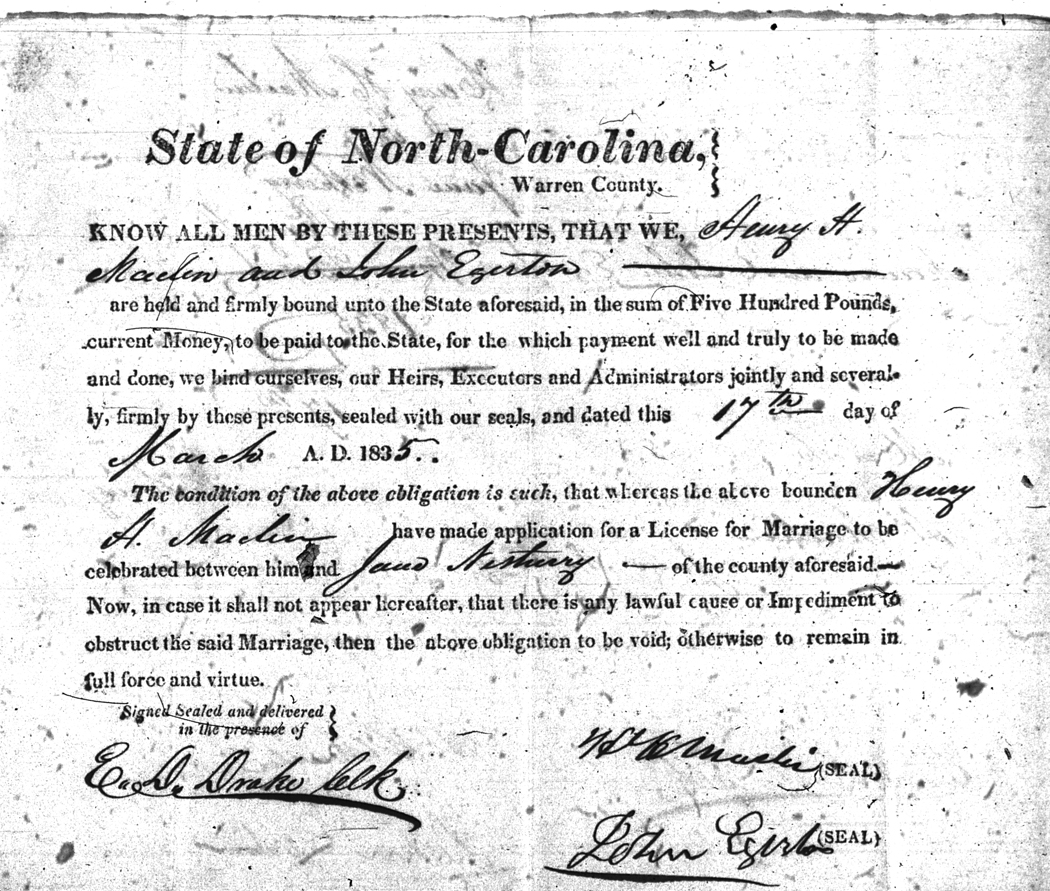 State of North-Carolina,
Warren County.
KNOW ALL MEN BY THESE PRESENTS, THAT WE, Henry H.
Maclin and John Egerton
are held and firmly bound unto the State aforesaid, in the sum of Five Hundred Pounds,
current Money, to be paid to the State, for the which payment well and truly to be made
and done, we bind ourselves, our Heirs, Executors and Administrators jointly and several-
ly, firmly by these presents, sealed with our seals, and dated this 17th day of
March A. D. 1835.
The condition of the above obligation is such, that whereas the above bounden Henry
H. Maclin have made application for a License for Marriage to be
celebrated between him and Jane of the county aforesaid.
Now, in case it shall not appear hereafter, that there is any lawful cause or Impediment to
obstruct the said Marriage, then the above obligation to be void; otherwise to remain in
full force and virtue.
Signed Sealed and delivered
in the presence of
E. D. Drake Clk
Maclin (SEAL)
John Egerton (SEAL)